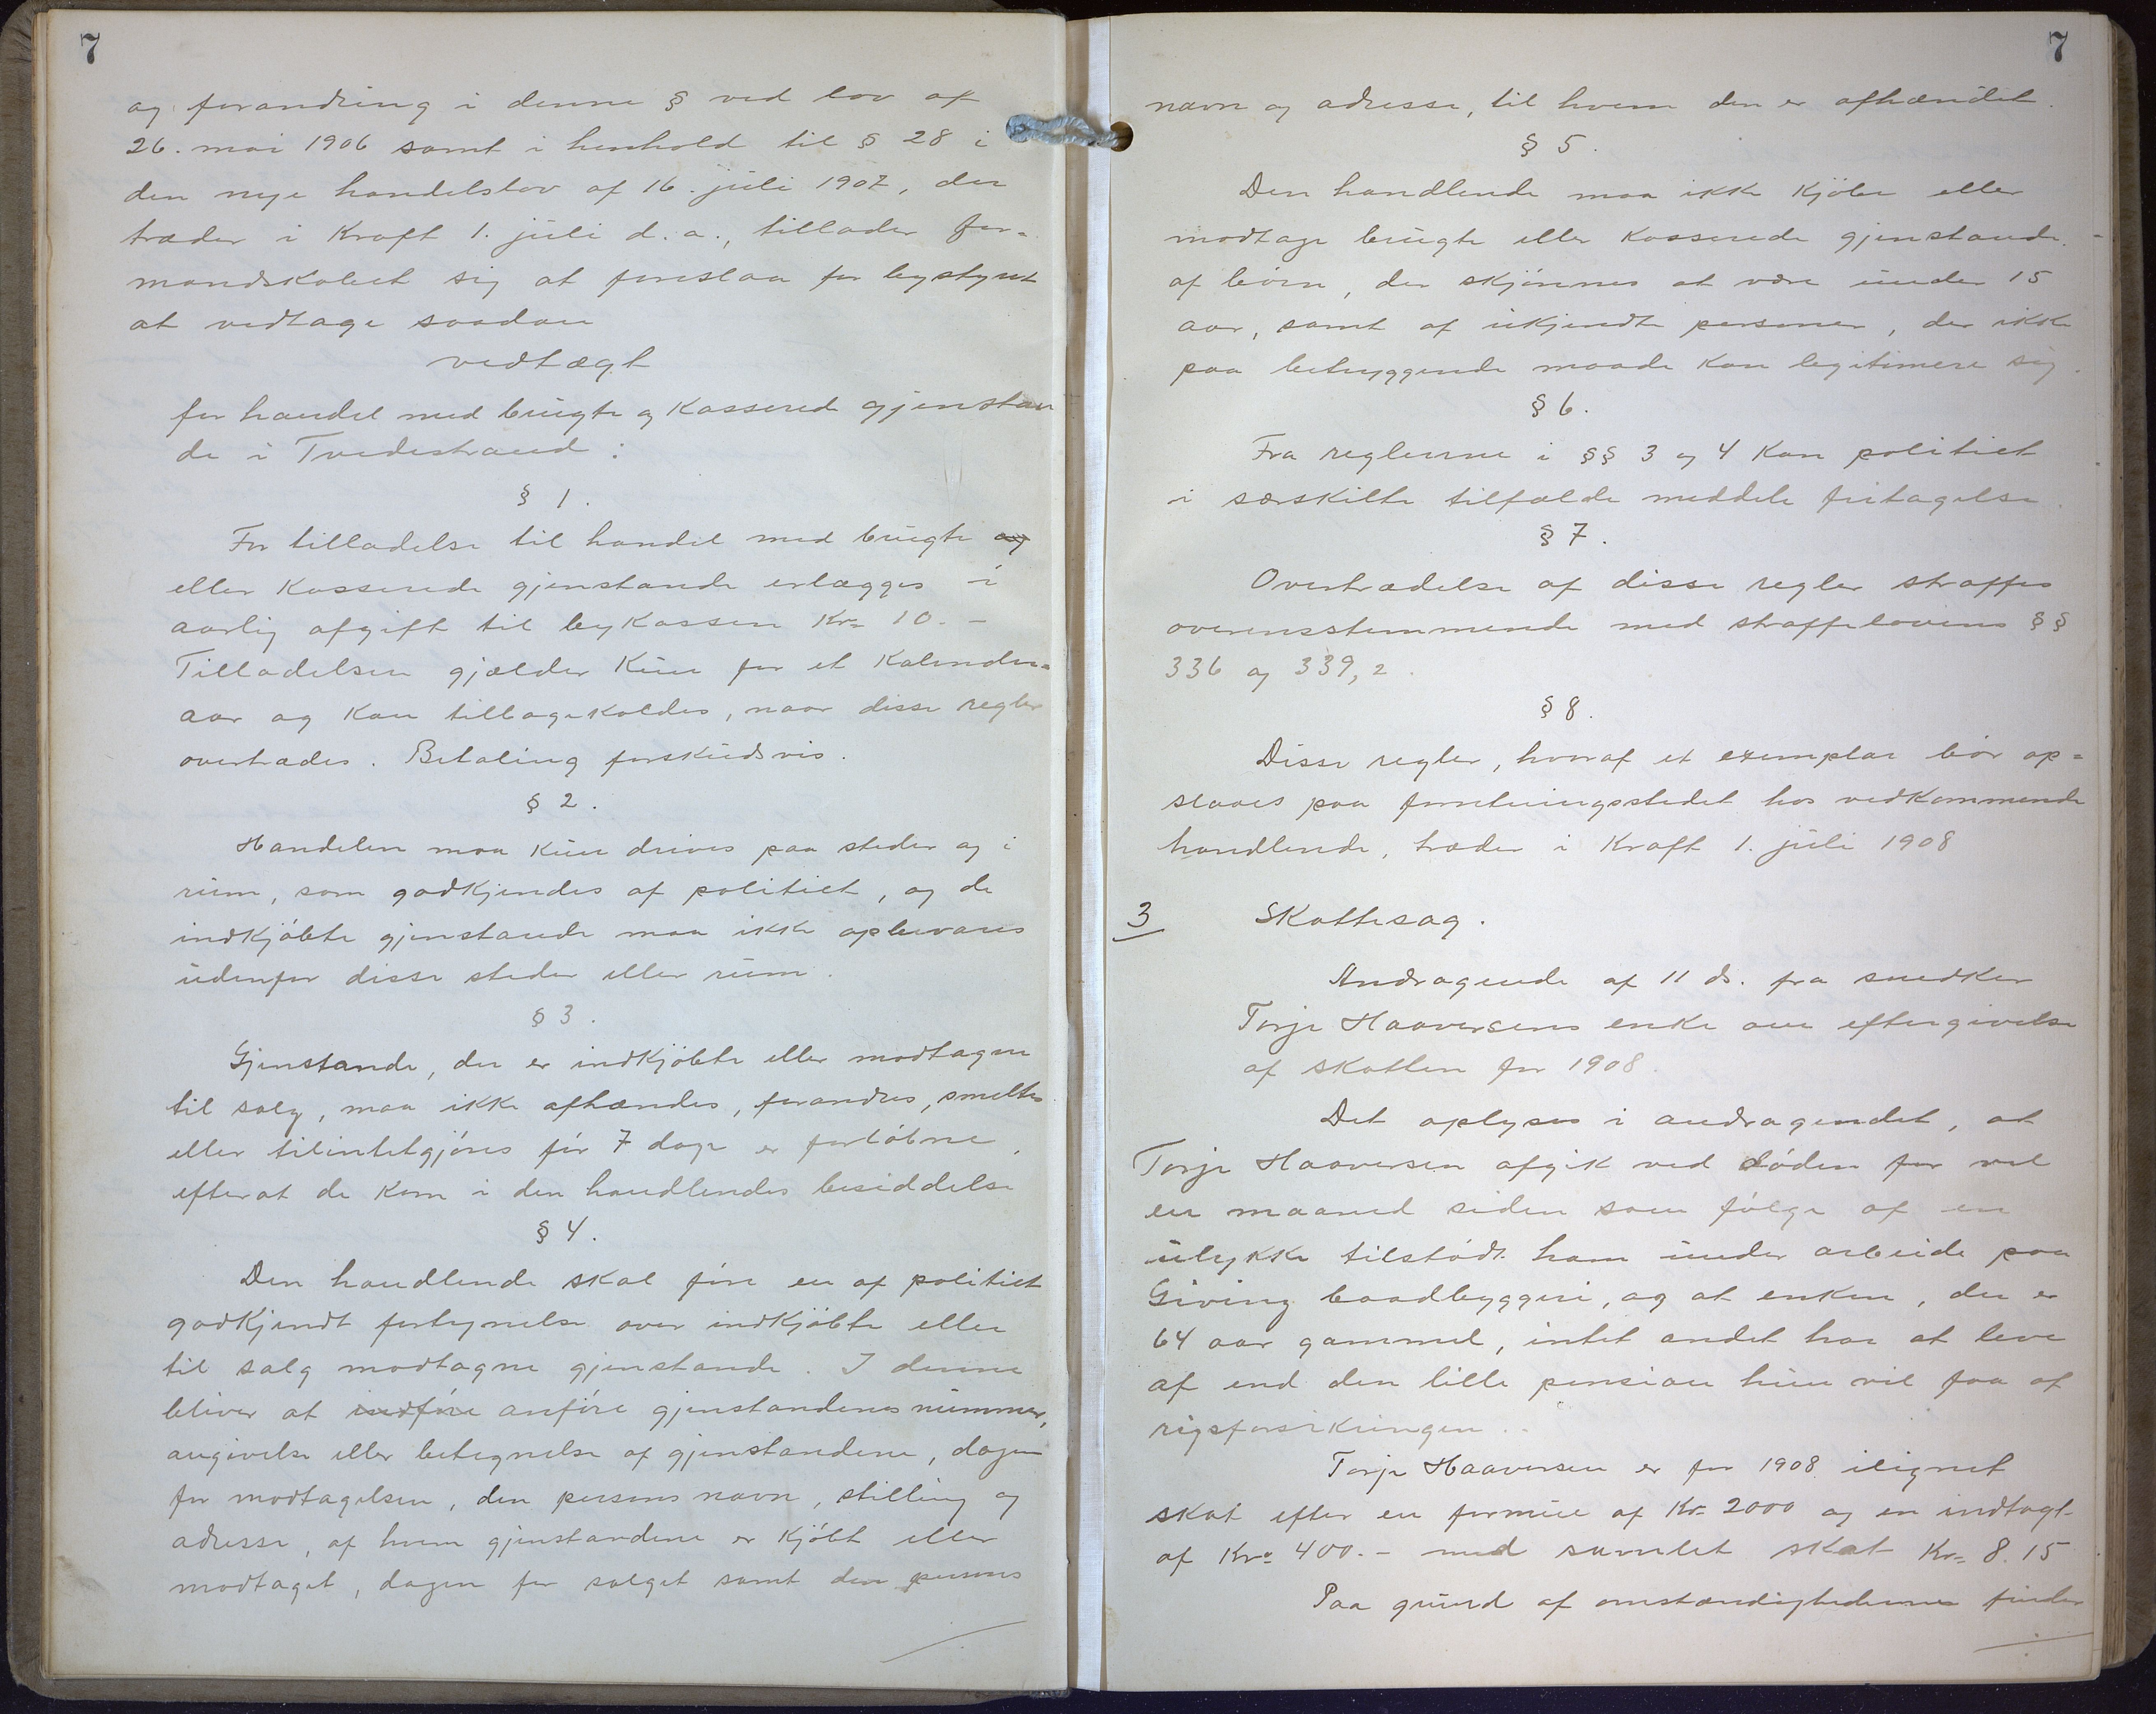 7
og forandring i denne § ved lov af
26. mai 1906 samt i henhold til § 28 i
den nye handelslov af 16. juli 1907, der
træder i Kraft 1. juli d. a., tillader for-
mandskabet sig at foreslaa for bystyret
at vedtage saadan
vedtægt
for handel med brugte og Kasserede gjenstan
de i Tvedestrand:
§ 1.
For tilladelse til handel med brugte og
eller Kasserede gjenstande erlægges i
aarlig afgift til byKassen Kr= 10.-
Tilladelsen gjælder Kun for et Kalender=
aar og Kan tilbageKaldes, naar disse regler
overtrædes. Betaling forskudsvis.
§ 2.
Handelen maa Kun drives paa steder og i
rum, som godKjendes af politiet, og de
indKjøbte gjenstande maa ikke opbevares
udenfor disse steder eller rum.
§ 3.
Gjenstande, der er indKjøbte eller modtagne
til salg, maa ikke afhændes, forandres, smeltes
eller tilintetgjøres før 7 dage er forløbne,
efterat de Kom i den handlendes besiddelse
§ 4.
Den handlende skal føre en af politiet
godKjendt fortegnelse over indKjøbte eller
til salg modtagne gjenstande. I denne
bliver at indføre anføre gjenstandenes nummer,
angivelse eller betegnelse af gjenstandene, dagen
for modtagelsen, den persons navn, stilling og
adresse, af hvem gjenstandene er Kjøbt eller
modtaget, dagen for salget samt den persons
7
navn og adresse, til hvem den er afhændet.
§ 5.
Den handlende maa ikke Kjøbe eller
modtage brugte eller Kasserede gjenstande
af børn, der skjønnes at være under 15
aar, samt af ukjendte personer, der ikke
paa betryggende maade Kan legitimere sig.
§ 6.
Fra reglerne i §§ 3 og 4 Kan politiet
i særskilte tilfælde meddele fritagelse.
§ 7.
Overtrædelse af disse regler straffes
overensstemmende med straffelovens §§
336 og 339, 2.
§ 8.
Disse regler, hvoraf et exemplar bør op=
slaaes paa forretningsstedet hos vedKommende
handlende, træder i Kraft 1. juli 1908
3 Skattesag.
Andragende af 11 ds. fra snedker
Torje Haaversens enke om eftergivelse
af skatten for 1908.
Det oplyses i andragendet, at
Torje Haaversen afgik ved døden for vel
en maaned siden som følge af en
ulykke tilstødt ham under arbeide paa
Giving baadbyggeri, og at enken, der er
64 aar gammel, intet andet har at leve
af end den lille pension hun vil faa af
rigsforsikringen.
Torje Haaversen er for 1908 ilignet
skat efter en formue af Kr= 2000 og en indtægt
af Kr= 400.- med samlet skat Kr= 8.15
Paa grund af omstændighederne finder